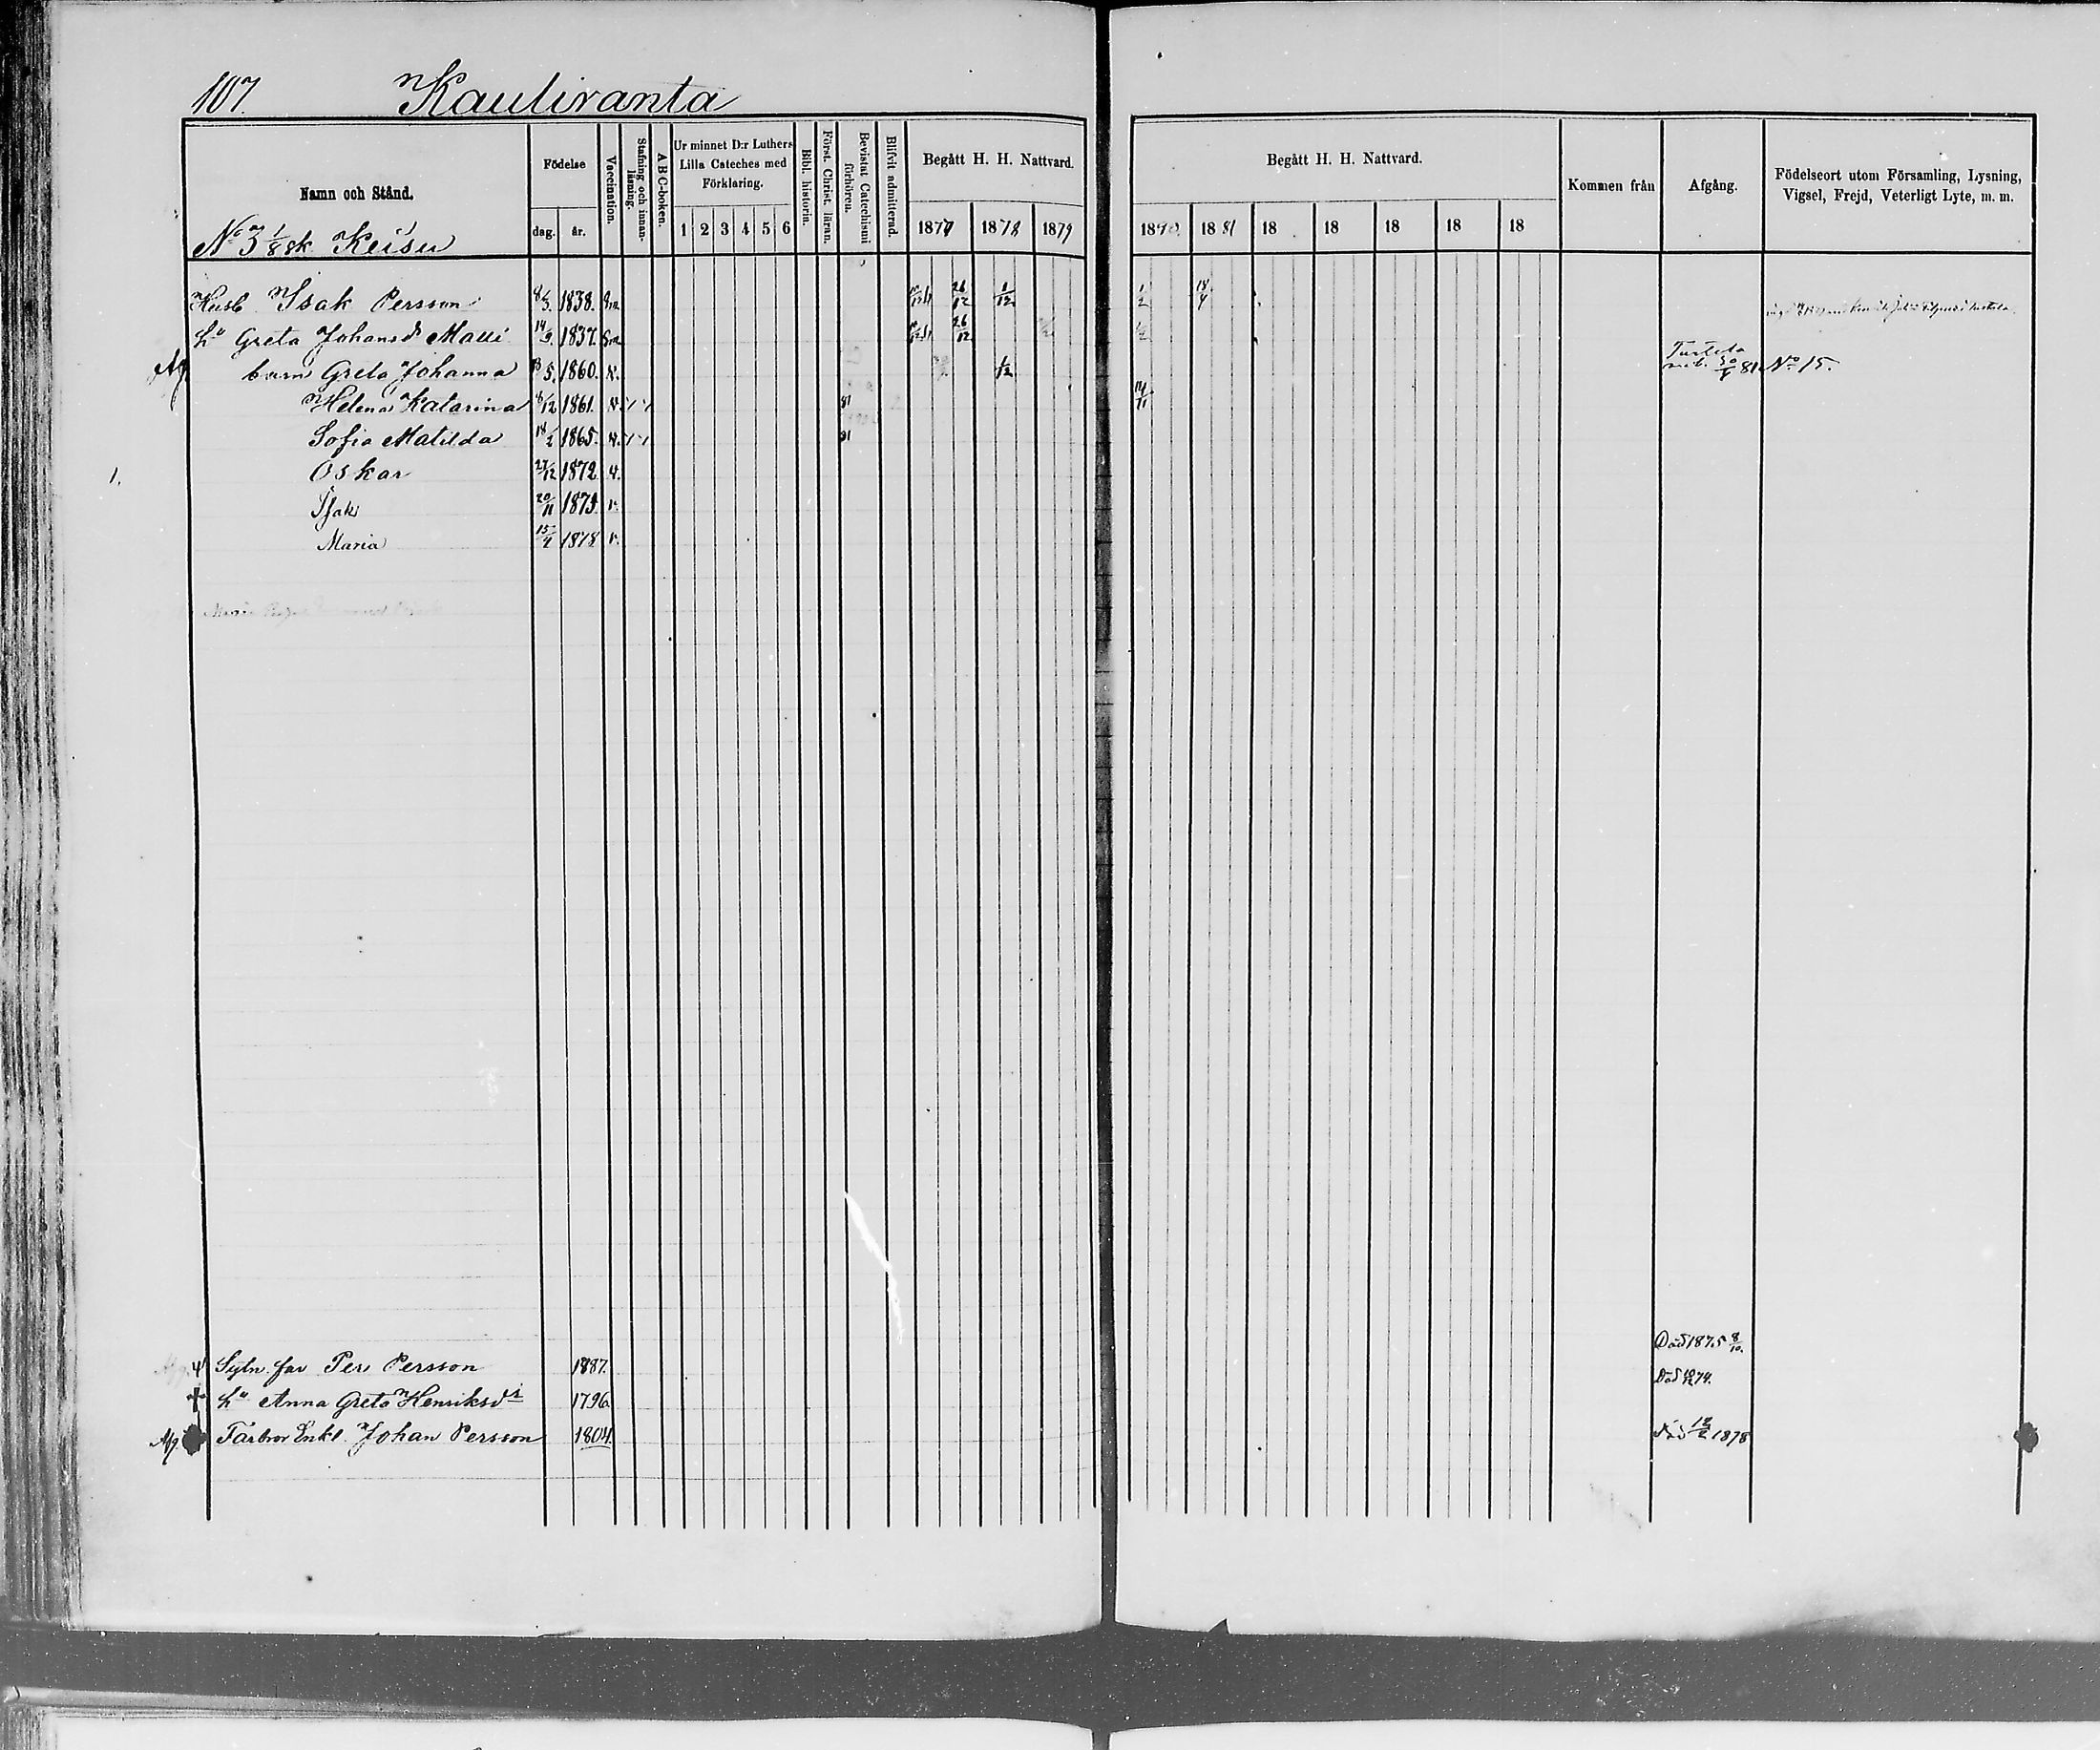 107. Kauliranta
Namn och Stånd.
Födelse
dag. år.
Vaccination.
Stafning och innanläsning.
A B C-boken.
Ur minnet D:r Luthers Lilla Cateches med Förklaring.
1 2 3 4 5 6
Bibl. historia.
Först. Christ. läran.
Bevistat Catechismi förhören.
Blifvit admitterad.
Begått H. H. Nattvard.
1877 1878 1879
Begått H. H. Nattvard.
1880. 1881 18 18 18 18 18
Kommen från
Afgång.
Födelseort utom Församling, Lysning, Vigsel, Frejd, Veterligt Lyte, m. m.
No 3 1/8 sk. Keisu
Husb. Isak Persson 8/3. 1838. 26/12 1/12 1/2 18/4
Hu Greta Johansdr Malli 14/9. 1837. 26/12 1/2
Afg barn Greta Johanna 5. 1860. v. 1/12 Turtola 81 No 15.
Helena Katarina 8/12 1861. v. 81 14/11
Sofia Matilda 18/2 1865. v. 81
1. Oskar 27/12 1872 v.
Isak 20/11 1875 v.
Maria 15/2 1878 v.
Död 1875 8/10.
Sytn. far Per Persson 1887.
Hu Anna Greta Henriksdr 1796 Död 74.
Afg. Farbror Enkl. Johan Persson 1804. Död 12/2 1878